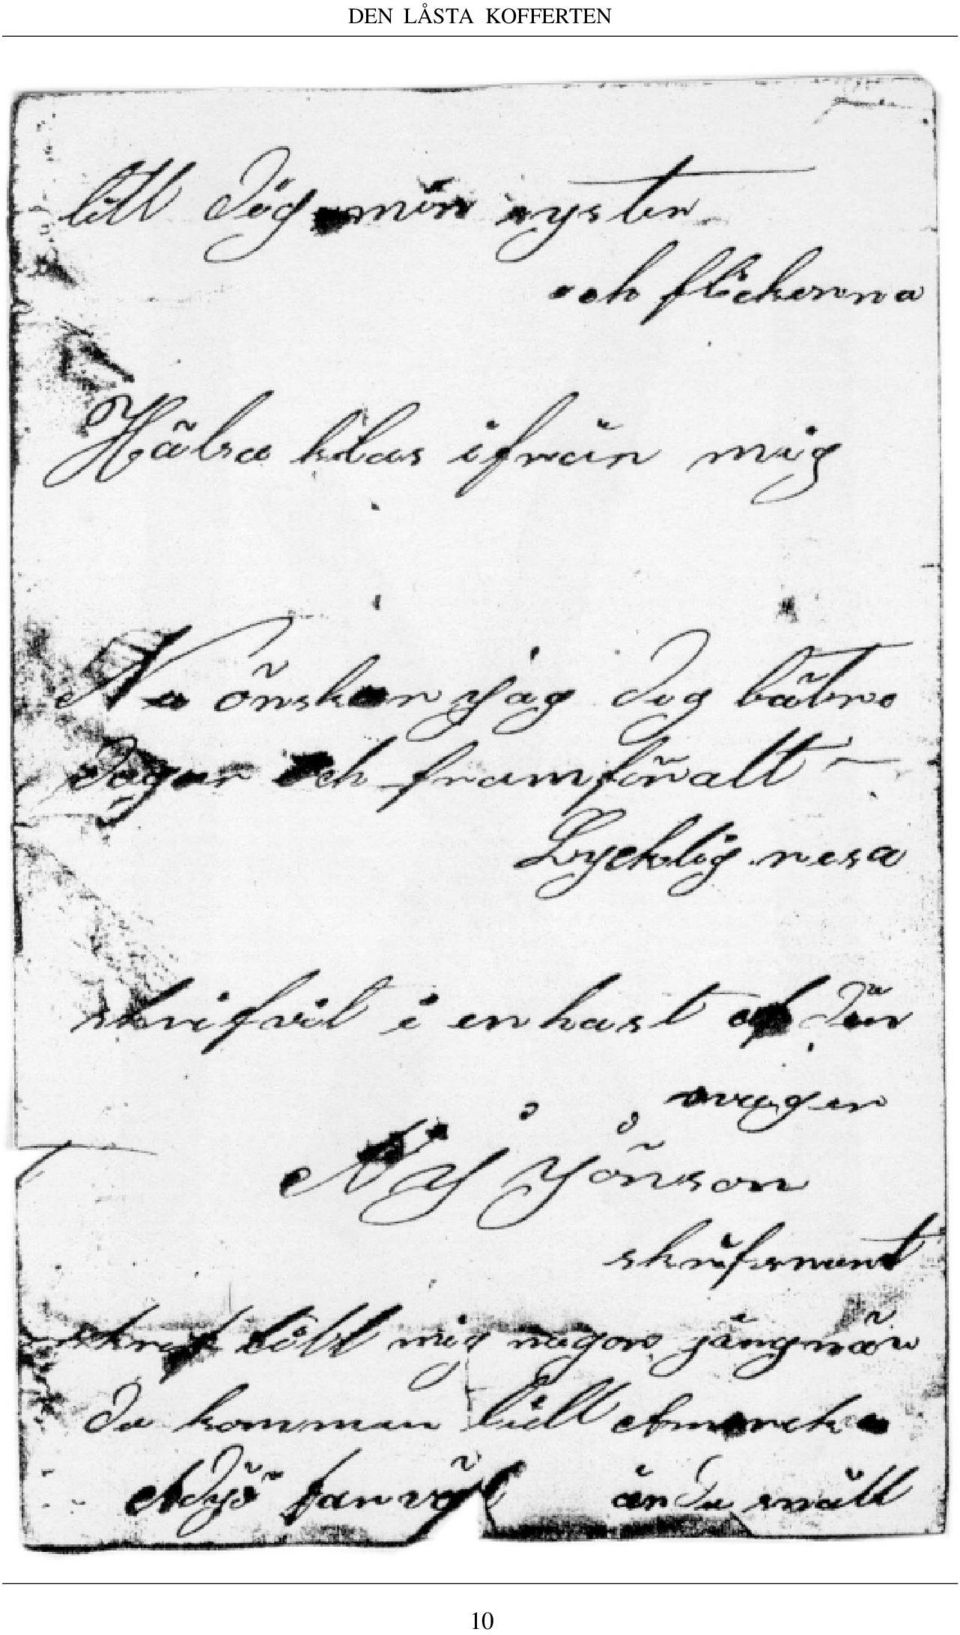 DEN LÅSTA KOFFERTEN
till Dig min syster
och flickorna
Hälsa klas ifrån mig
Nu önskar jag Dig bätre
Dagar och framför allt
Lycklig resa
skrifvit i en hast af Din
svåger
N J Jönson
skrifsnart
skrif till mig någon gång när
Du kommer till Amercka
Adjö farväl är Du snäll
10